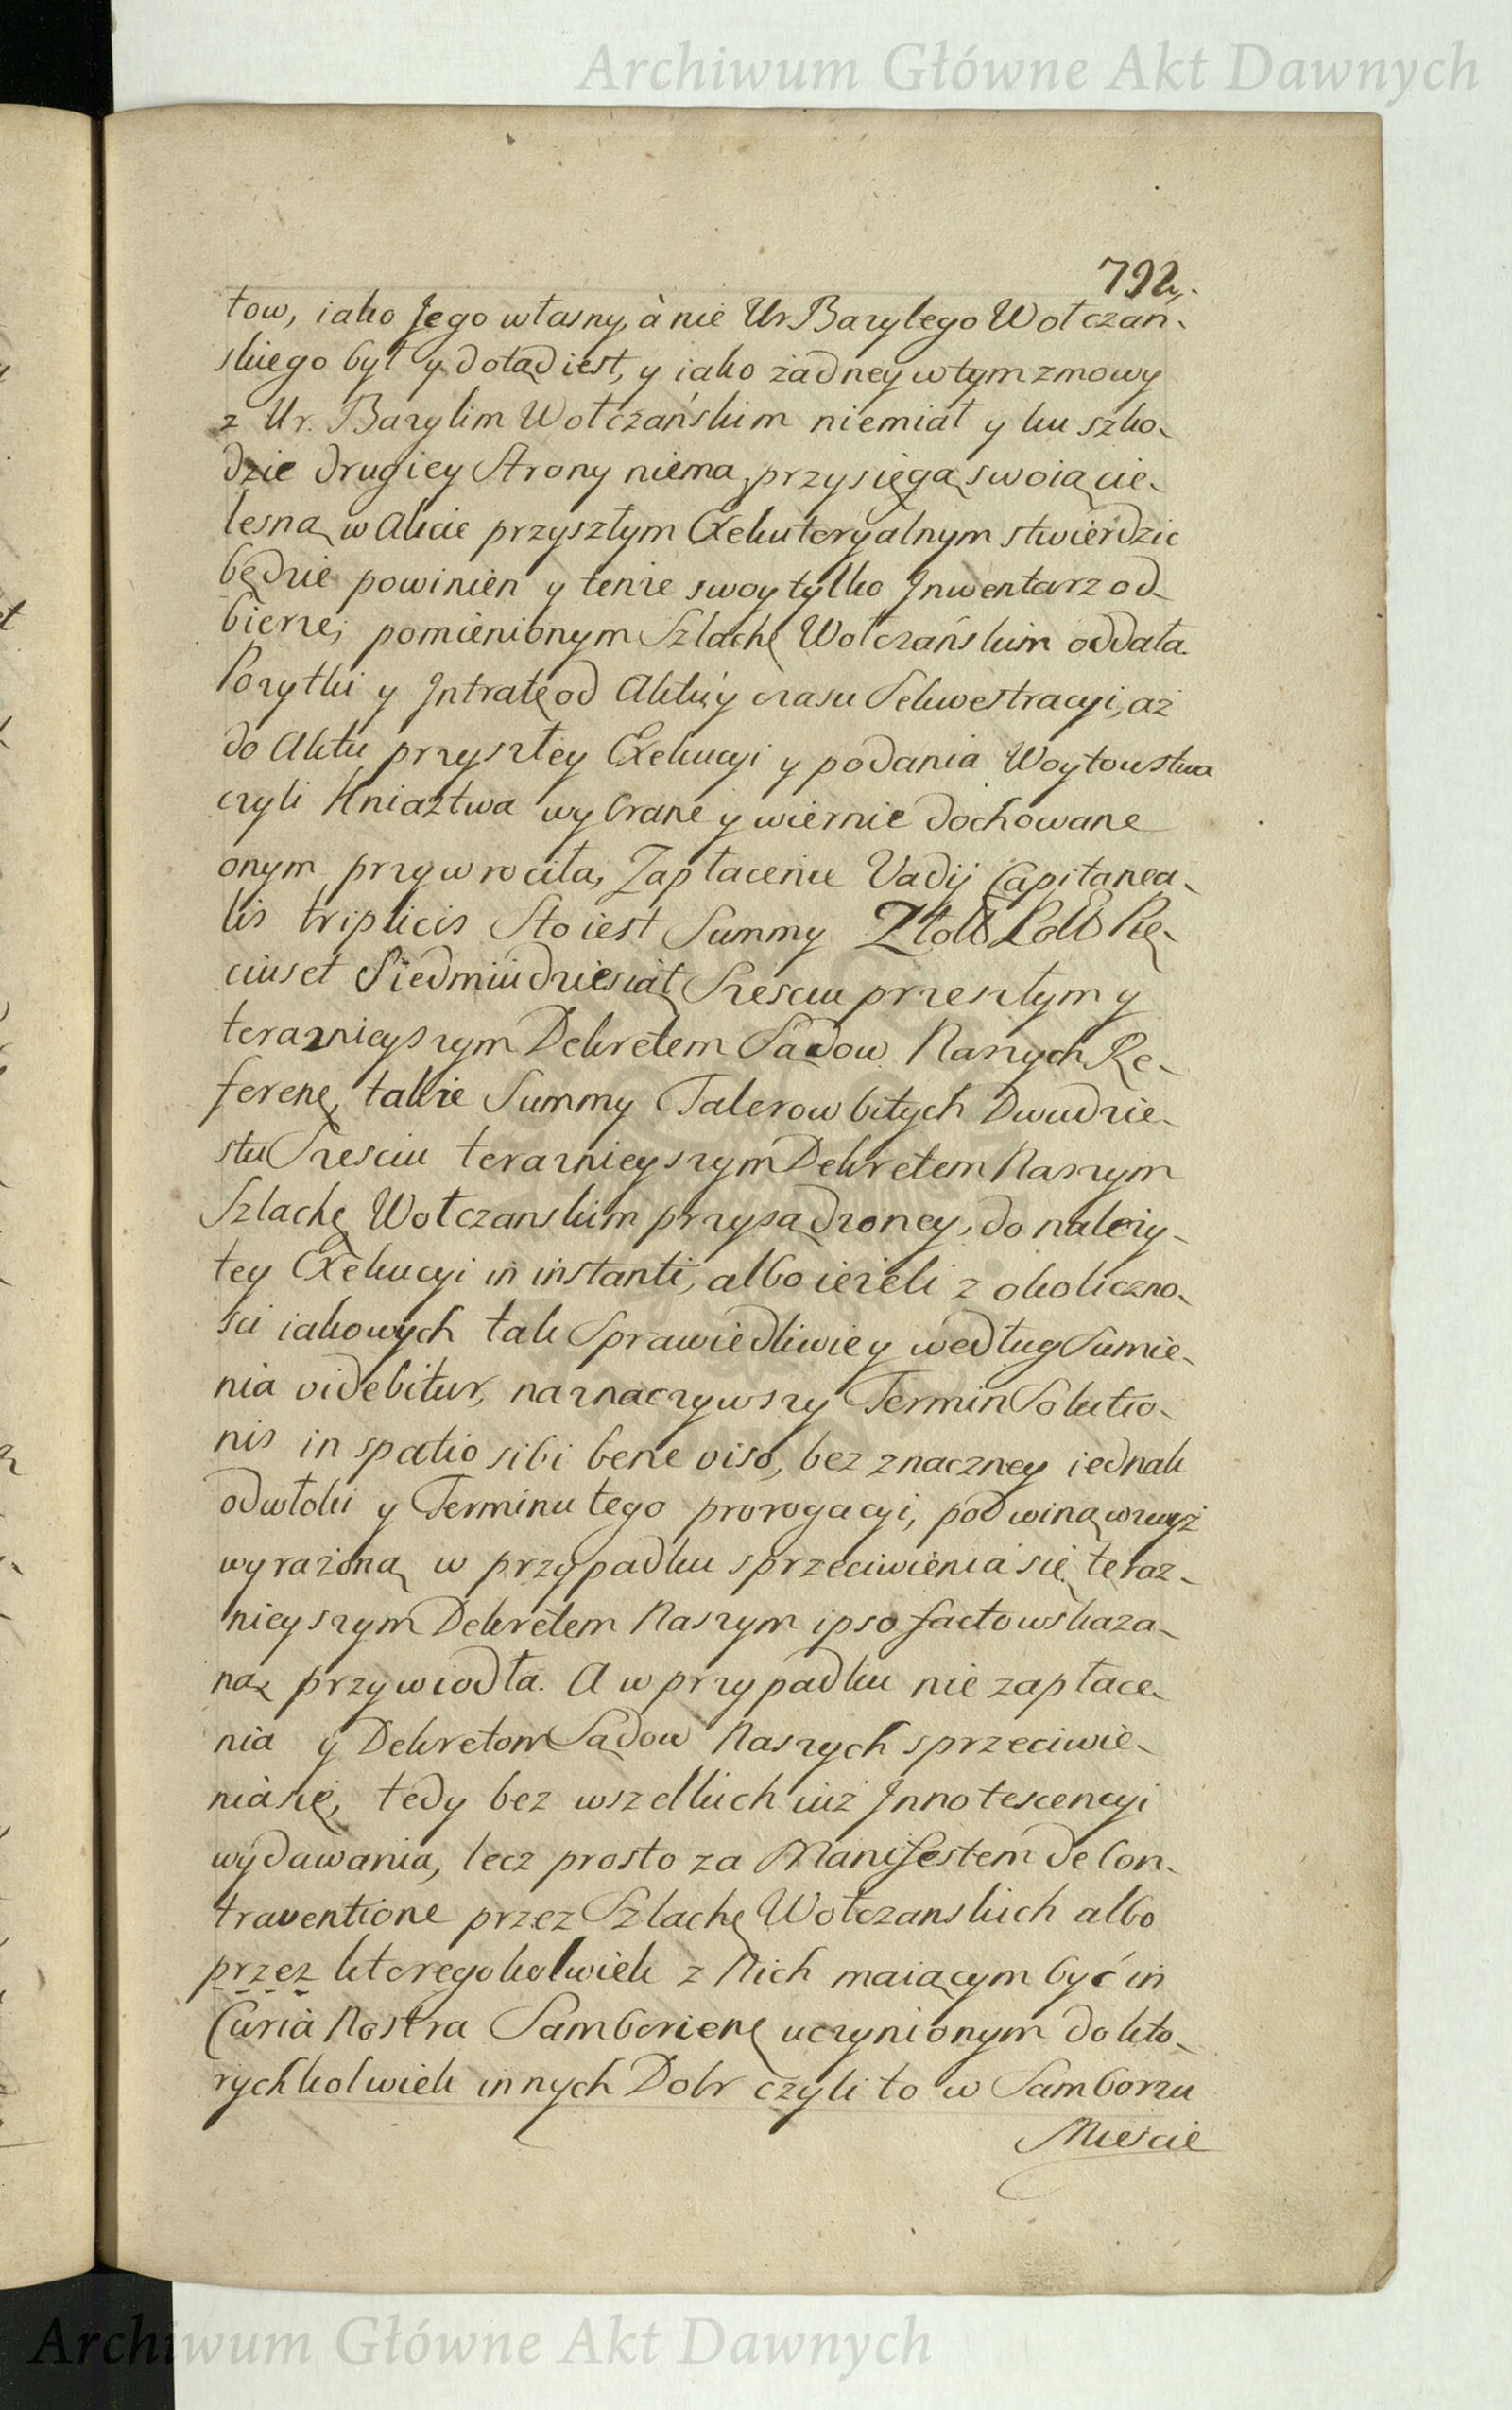 Archiwum Główne Akt Dawnych
792.
tow, iako Jego własny, à nie Ur. Bazylego Wołczań-
skiego był y dotąd iest, y iako żadney w tym zmowy
z Ur. Bazylim Wołczańskim niemiał y ku szko-
dzie drugiey Strony niema, przysięgą swoią cie-
lesną w Akcie przyszłym Exekutoryalnym stwierdzic
będzie powinien y tenże swoy tylko Jnwentarz od-
bierze, pomienionym Szlachę Wołczańskim oddała.
Pozytki y Jntratę od Aktu y czasu Sekwestracyi, aż
do Aktu przyszłey Exekucyi y podania Woytowstwa
czyli Kniaztwa wybrane y wiernie dochowane
onym przywrociła, Zapłacenie Vadij Capitanea-
lis triplicis Sto iest Summy Złott Poltt Pię-
ciuset Siedmiudziesiąt Szesciu przeszłym y
teraznieyszym Dekretem Sądow Naszych Re-
ferenę, takze Summy Talerow bitych Dwudzie-
stu Szesciu teraznieyszym Dekretem Naszym
Szlachę Wołczanskim przysądzoney, do nalezy-
tey Exekucyi in instanti, albo iezeli z okoliczno-
sci iakowych tak Sprawiedliwiey według Sumie-
nia videbitur, naznaczywszy Termin Solutio-
nis in spatio sibi bene viso, bez znaczney iednak
odwłoki y Terminu tego prorogacyi, pod winą wzwyż
wyrażoną w przypadku sprzeciwienia się teraz-
nieyszym Dekretem Naszym ipso facto wskaza-
ną przywiodła. A w przypadku nie zapłace-
nia y Dekretom Sądow Naszych sprzeciwie-
nia się, tedy bez wszelkich iuż Jnnotescencyi
wydawania, lecz prosto za Manifestem de Con-
traventione przez Szlachę Wołczanskich albo
przez ktoregokolwiek z Nich maiącym być in
Curia Nostra Samborienę uczynionym do kto-
rychkolwiek innych Dobr czyli to w Samborzu
Miescie
Archiwum Główne Akt Dawnych